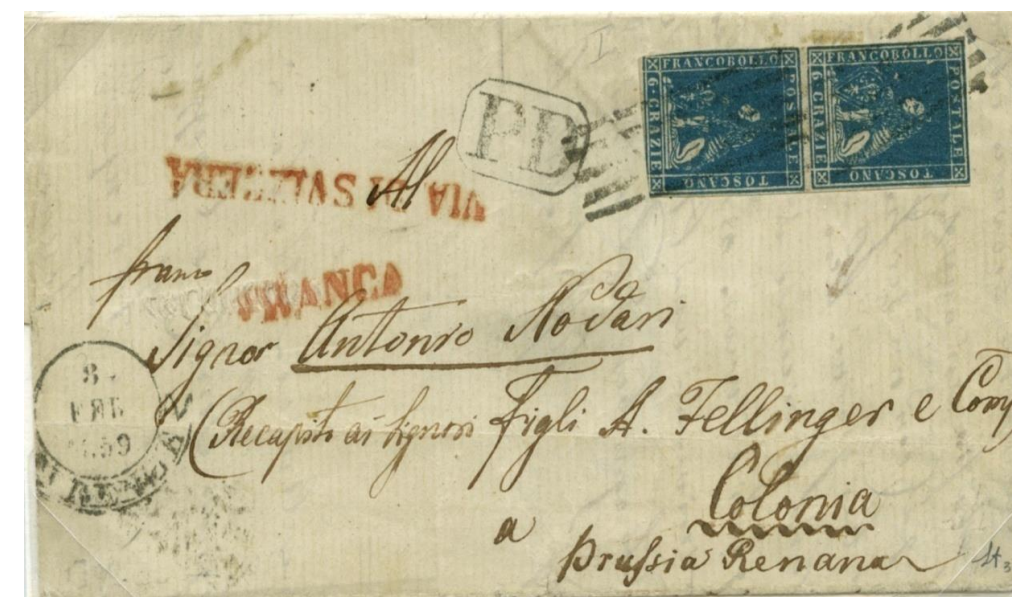 FRANCOBOLLO POSTALE TOSCANO 6 CRAZIE
FRANCOBOLLO POSTALE TOSCANO 6 CRAZIE
PD
VIA DI SVIZZERA
Al
franco
Signor Antonio Nodari
(Recapito ai Signori Figli A. Fellinger e Comp
a Colonia
Prussia Renana
8
FEB
FIRENZE